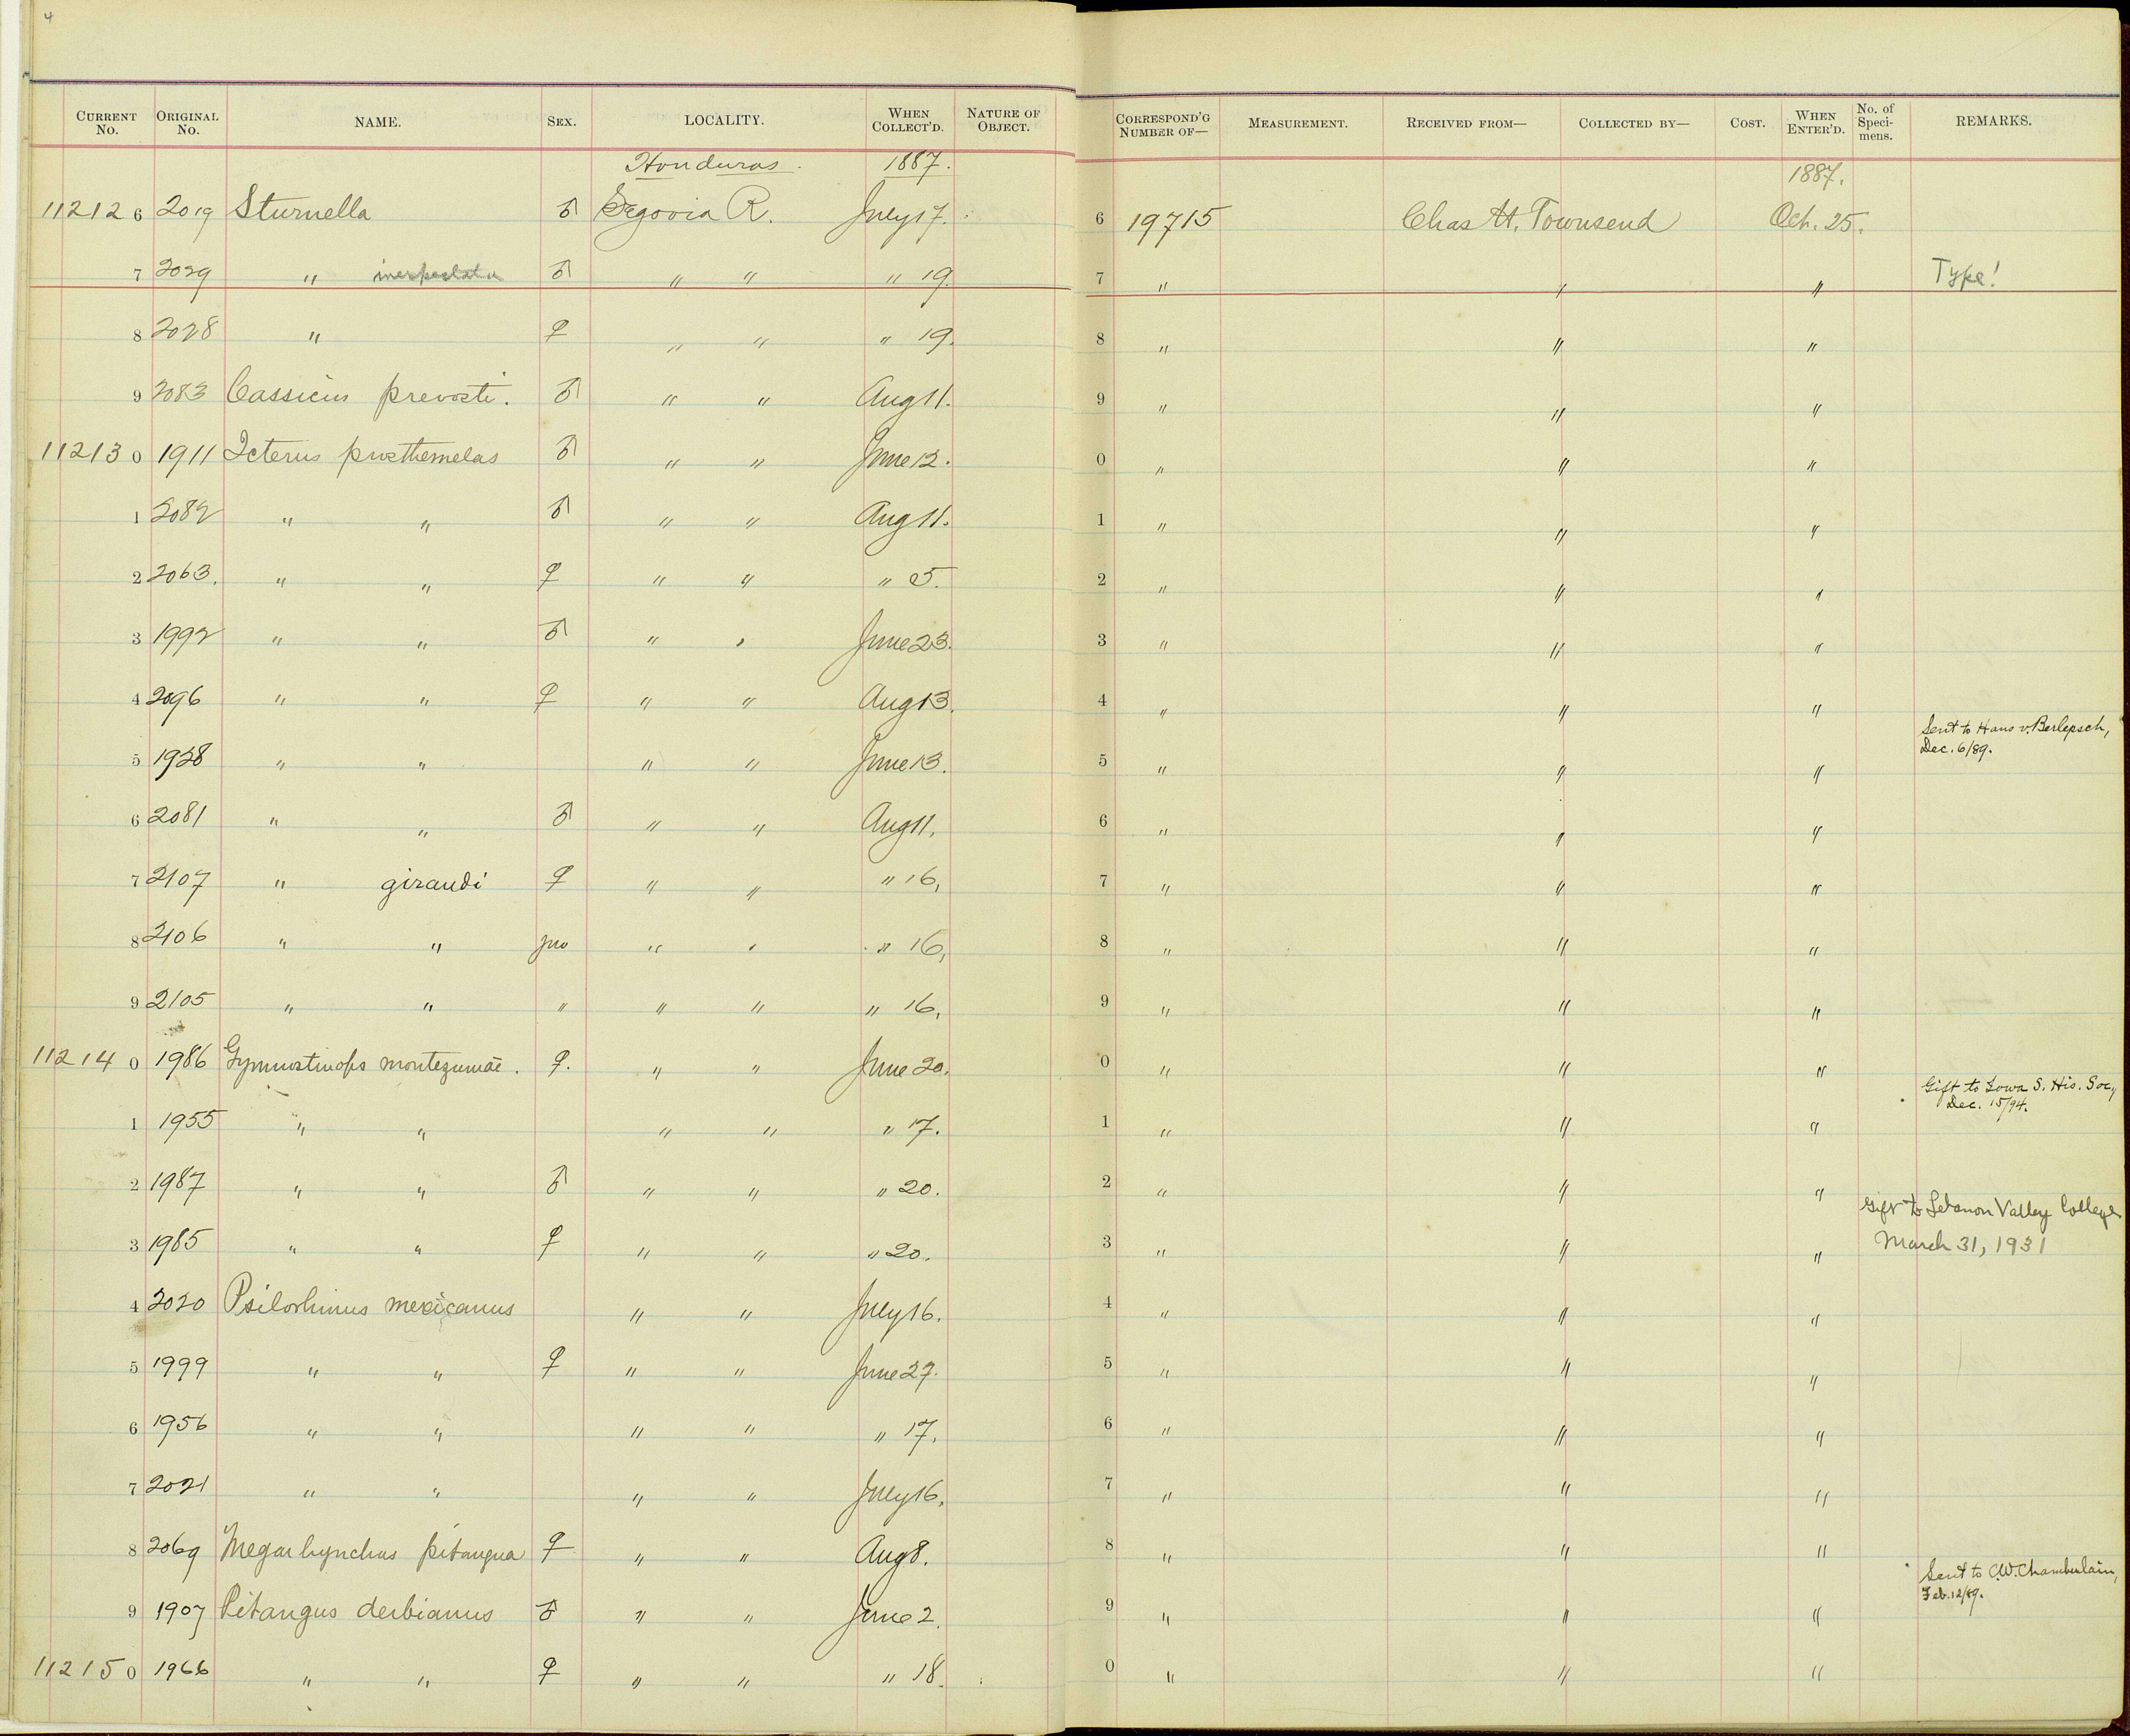 4
CURRENT No. ORIGINAL No. NAME. SEX. LOCALITY. WHEN COLLECT'D. NATURE OF OBJECT. CORRESPOND'G NUMBER OF— MEASUREMENT. RECEIVED FROM— COLLECTED BY— COST. WHEN ENTER'D. No. of Specimens. REMARKS.
Honduras. 1887. 1887.
11212 6 2019 Sturnella ♂ Segovia R. July 17. 6 19715 Chas H. Townsend Oct. 25.
7 2029 " inexpectata ♂ " " " 19. 7 " " " Type!
8 2028 " ♀ " " " 19. 8 " " "
9 2083 Cassicus prevosti. ♂ " " Aug 11. 9 " " "
11213 0 1911 Icterus prosthemelas ♂ " " June 12. 0 " " "
1 2082 " " ♂ " " Aug 11. 1 " " "
2 2063. " " ♀ " " " 5. 2 " " "
3 1992 " " ♂ " " June 23. 3 " " "
4 2096 " " ♀ " " Aug 13. 4 " " "
5 1928 " " " " June 13. 5 " " " Sent to Hans v. Berlepsch, Dec. 6/89.
6 2081 " " ♂ " " Aug 11. 6 " " "
7 2107 " giraudi ♀ " " " 16, 7 " " "
8 2106 " " juv " " " 16, 8 " " "
9 2105 " " " " " " 16, 9 " " "
11214 0 1986 Gymnostinops montezumae. ♀. " " June 20. 0 " " "
1 1955 " " " " " 17. 1 " " " Gift to Iowa S. His. Soc., Dec. 15/94.
2 1987 " " ♂ " " " 20. 2 " " "
3 1985 " " ♀ " " " 20. 3 " " " Gift to Lebanon Valley College March 31, 1931
4 2020 Psilorhinus mexicanus " " July 16. 4 " " "
5 1999 " " ♀ " " June 27. 5 " " "
6 1956 " " " " " 17. 6 " " "
7 2021 " " " " July 16. 7 " " "
8 2069 Megarhynchus pitangua ♀ " " Aug 8. 8 " " "
9 1907 Pitangus derbianus ♂ " " June 2. 9 " " " Sent to C.W. Chamberlain, Feb. 12/89.
11215 0 1966 " " ♀ " " " 18. 0 " " "